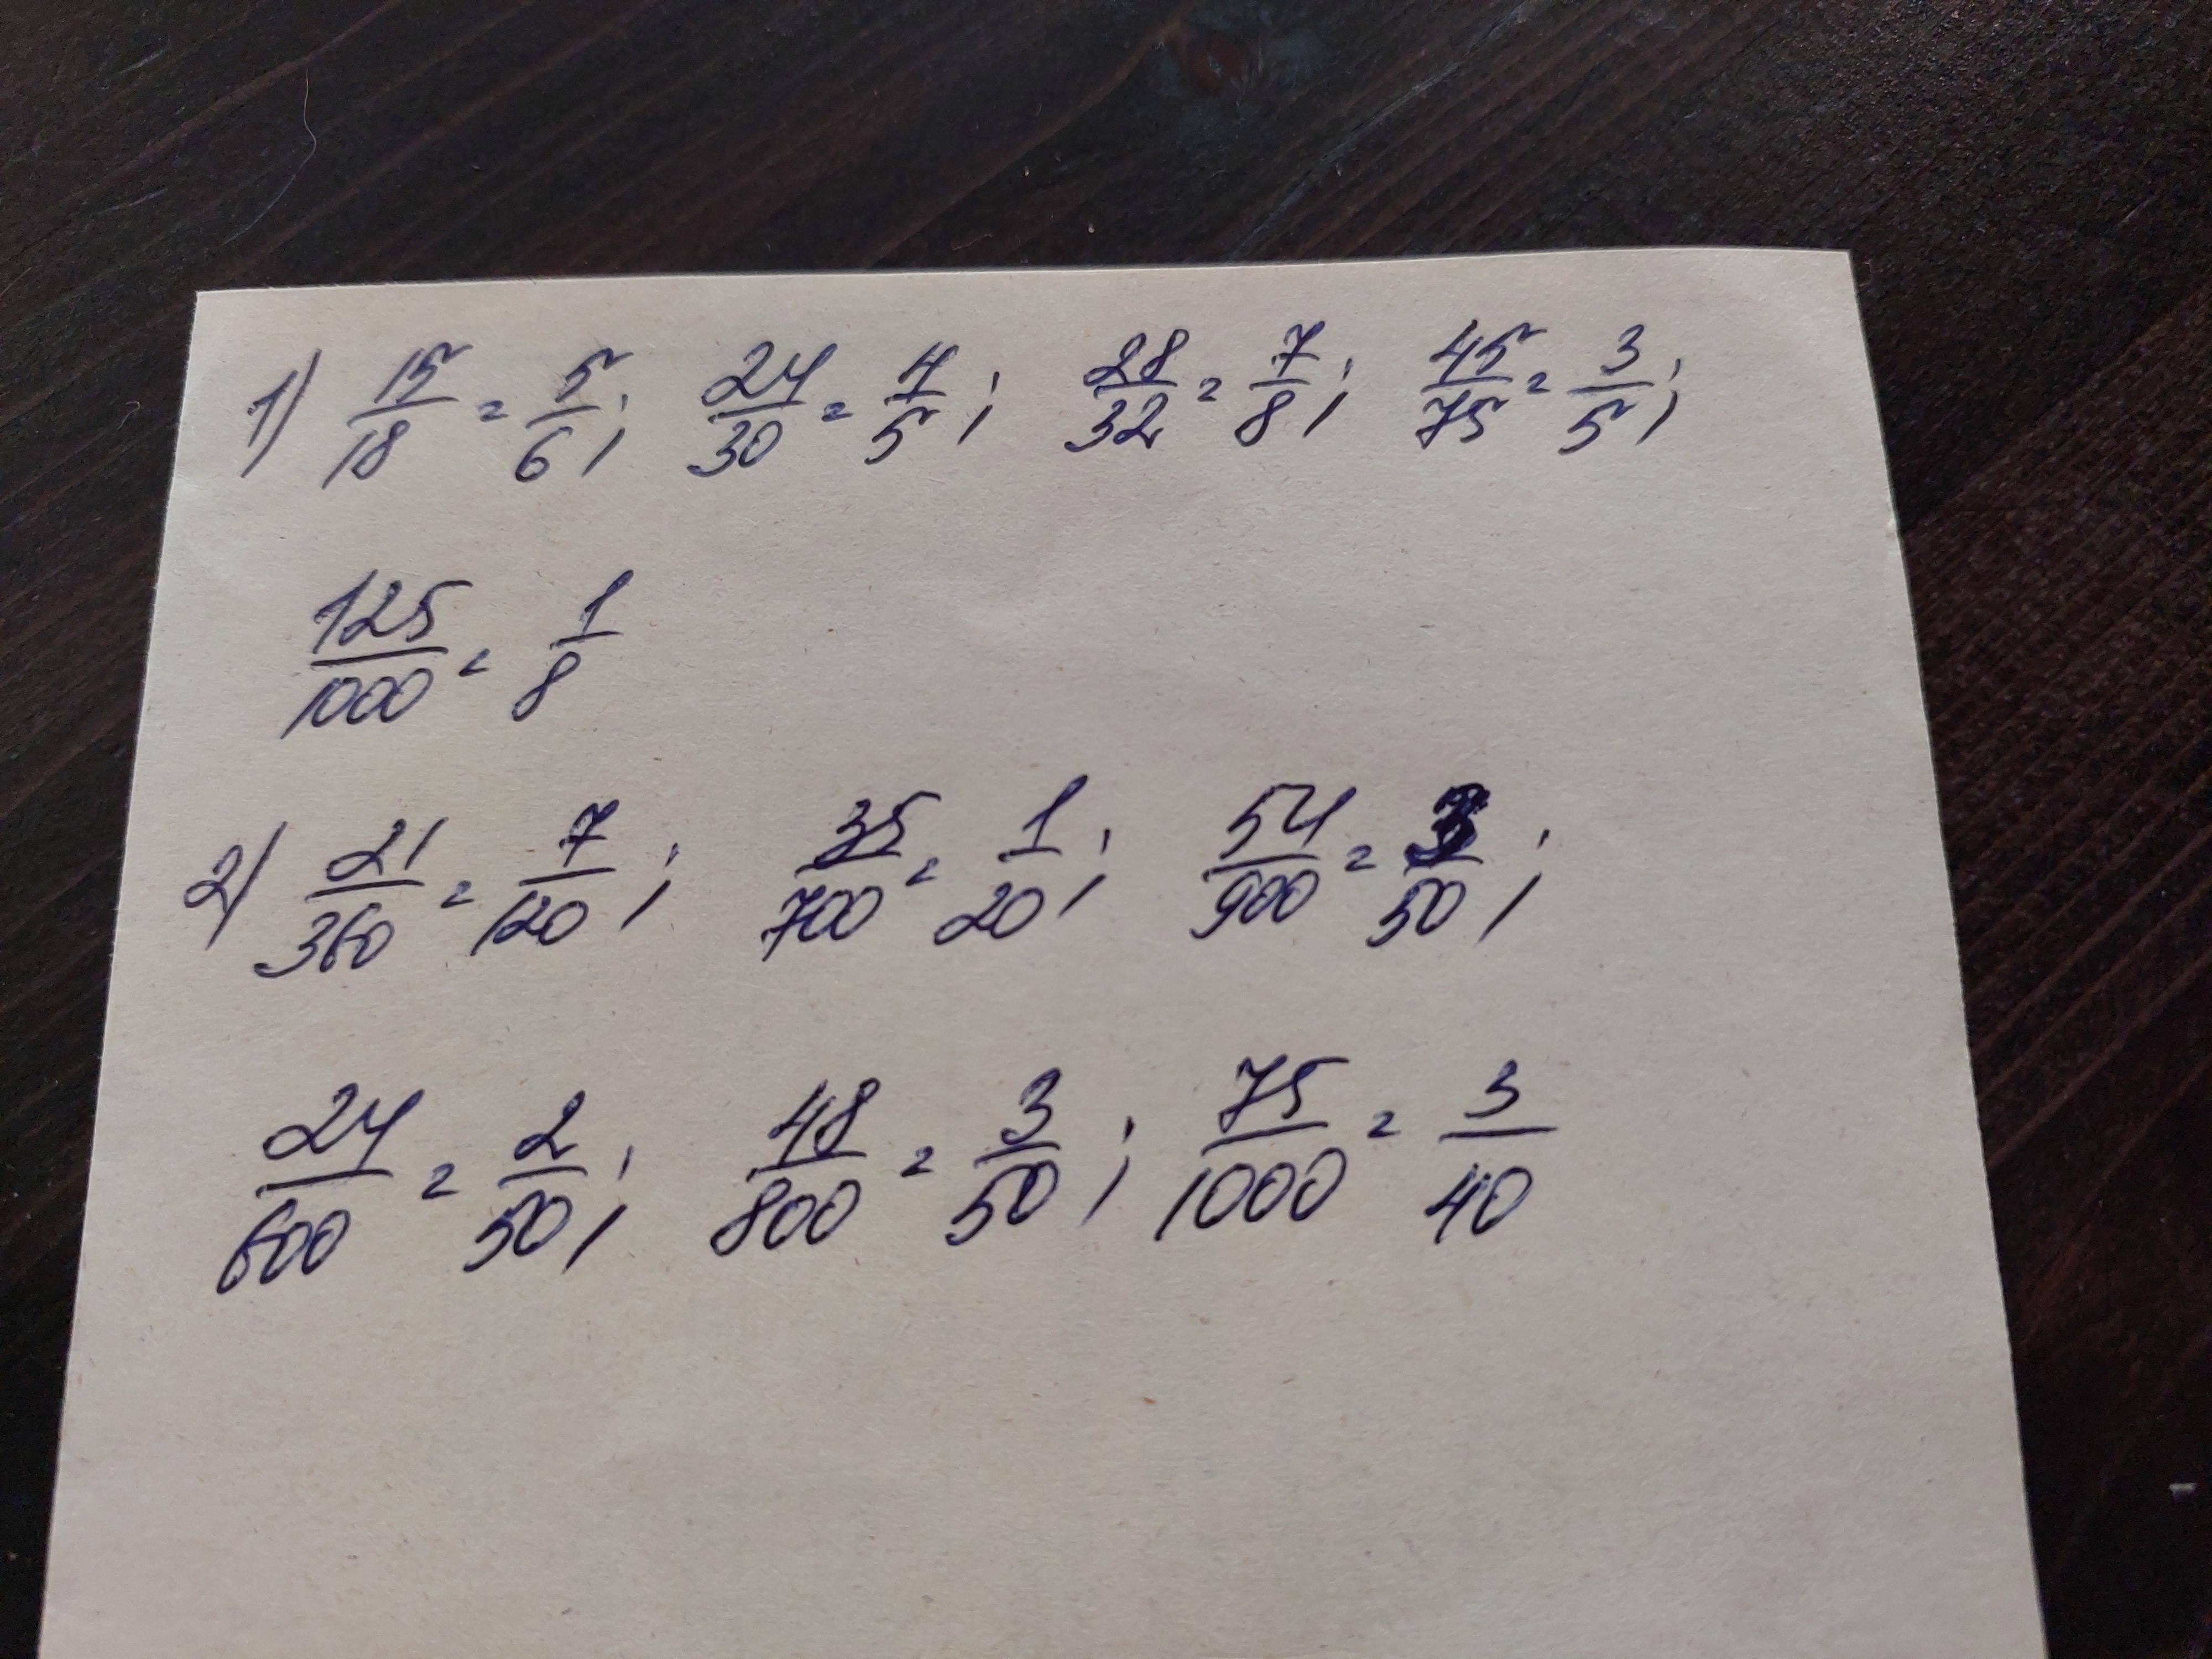 1) 15/18 = 5/6; 24/30 = 4/5; 28/32 = 7/8; 45/75 = 3/5;
125/1000 = 1/8
2) 21/360 = 7/120; 35/700 = 1/20; 54/900 = 3/50;
24/600 = 2/50; 48/800 = 3/50; 75/1000 = 3/40